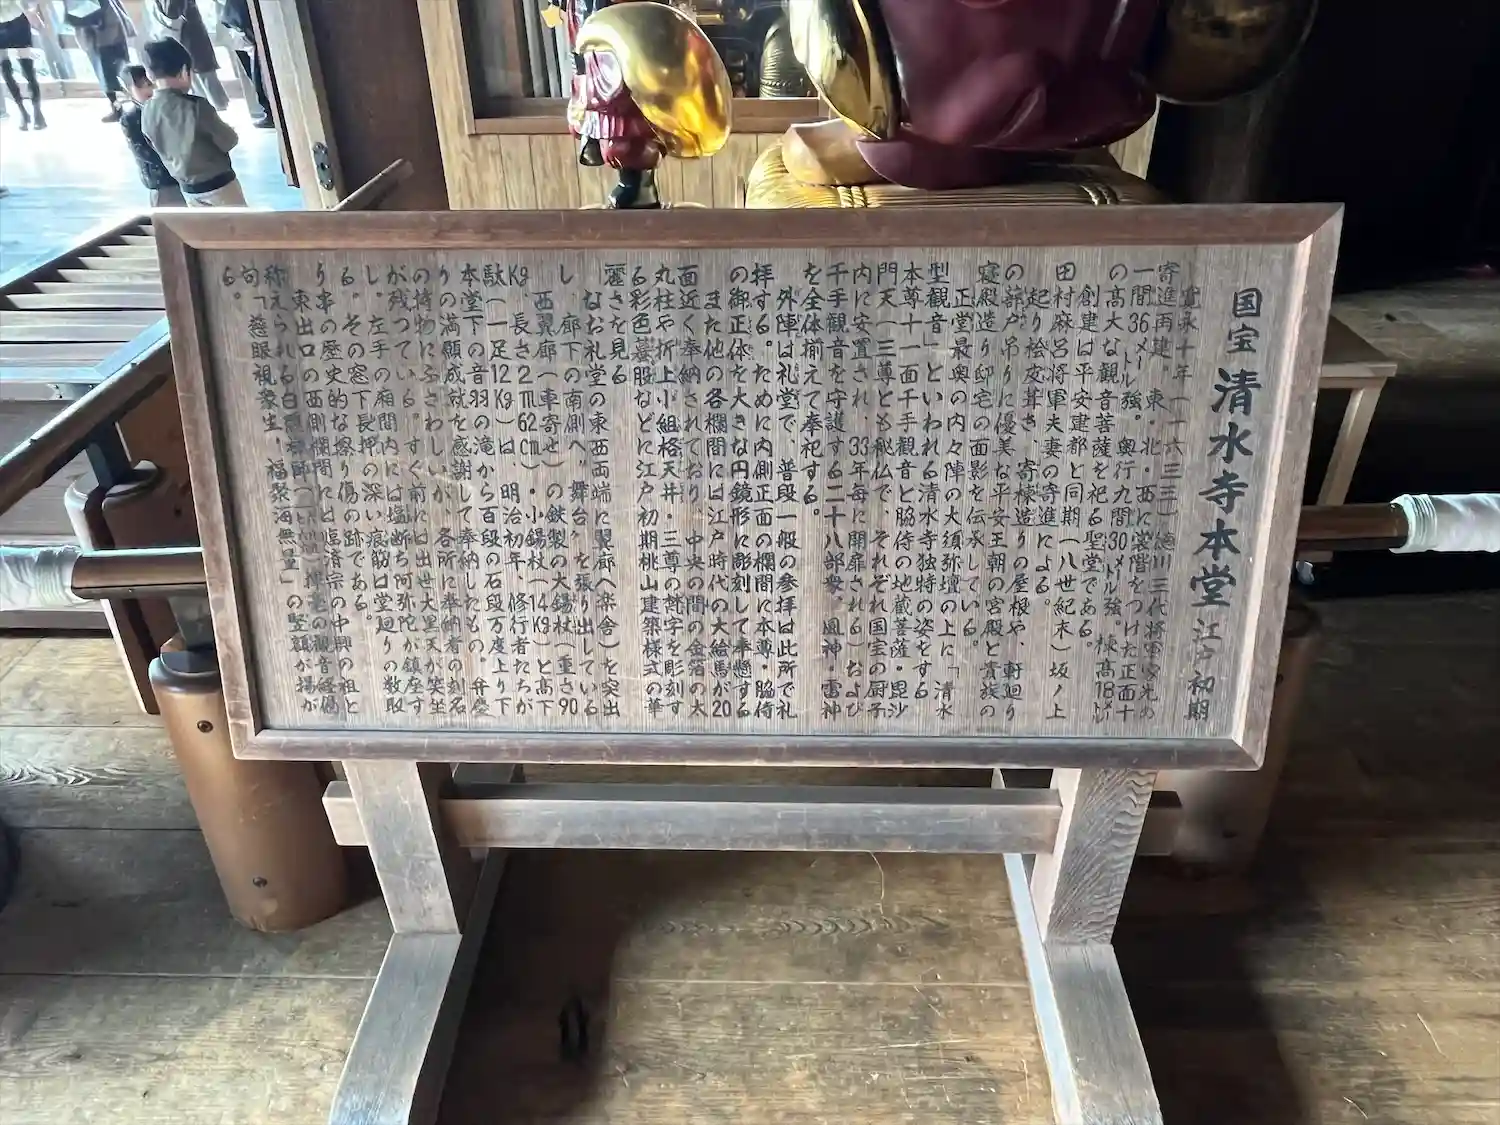 国宝 清水寺本堂 江戸初期
寛永十年(一六三三)徳川三代将軍家光の
寄進再建。東・北・西に裳階をつけた正面十
一間36メートル強。奥行九間30メートル強。棟高18メートル
の高大な観音菩薩を祀る聖堂である。
創建は平安建都と同期(八世紀末)坂ノ上
田村麻呂将軍夫妻の寄進による。
起り桧皮葺き、寄棟造りの屋根や、軒廻り
の蔀戸吊りに優美な平安王朝の宮殿と貴族の
寝殿造り邸宅の面影を伝承している。
正堂最奥の内々陣の大須弥壇の上に「清水
型観音」といわれる清水寺独特の姿をする
本尊十一面千手観音と脇侍の地蔵菩薩・毘沙
門天(三尊とも秘仏で、それぞれ国宝の厨子
内に安置され、33年毎に開扉される)および
千手観音を守護する二十八部衆。風神・雷神
を全体揃えて奉祀する。
外陣は礼堂で、普段一般の参拝は此所で礼
拝する。ために内側正面の欄間に本尊・脇侍
の御正体を大きな円鏡形に彫刻して奉懸する
また他の各欄間には江戸時代の大絵馬が20
面近く奉納されており、中央の間の金箔の大
丸柱や折上小組格天井・三尊の梵字を彫刻す
る彩色蟇股などに江戸初期桃山建築様式の華
麗さを見る
なお礼堂の東西両端に翼廊(楽舎)を突出
し、廊下の南側へ〝舞台〟を張り出している
西翼廊(車寄せ)の鉄製の大錫杖(重さ90
Kg、長さ2m62cm)・小錫杖(14Kg)と高下
駄(一足12Kg)は、明治初年、修行者たちが
本堂下の音羽の滝から百段の石段万度上り下
りの満願成就を感謝して奉納したもの。弁慶
の持物にふさわしいが、各所に奉納者の刻名
が残っている。すぐ前には出世大黒天が笑坐
し、左手の廂間内には塩断ち阿弥陀が鎮座す
る。その窓下長押の深い痕筋は堂廻りの数取
り事の歴史的な擦り傷の跡である。
東出口の西側欄間には臨済宗の中興の祖と
称えられる白隠禅師 揮毫の観音経偈
句「慈眼視衆生、福聚海無量」の竪額が揚が
る。